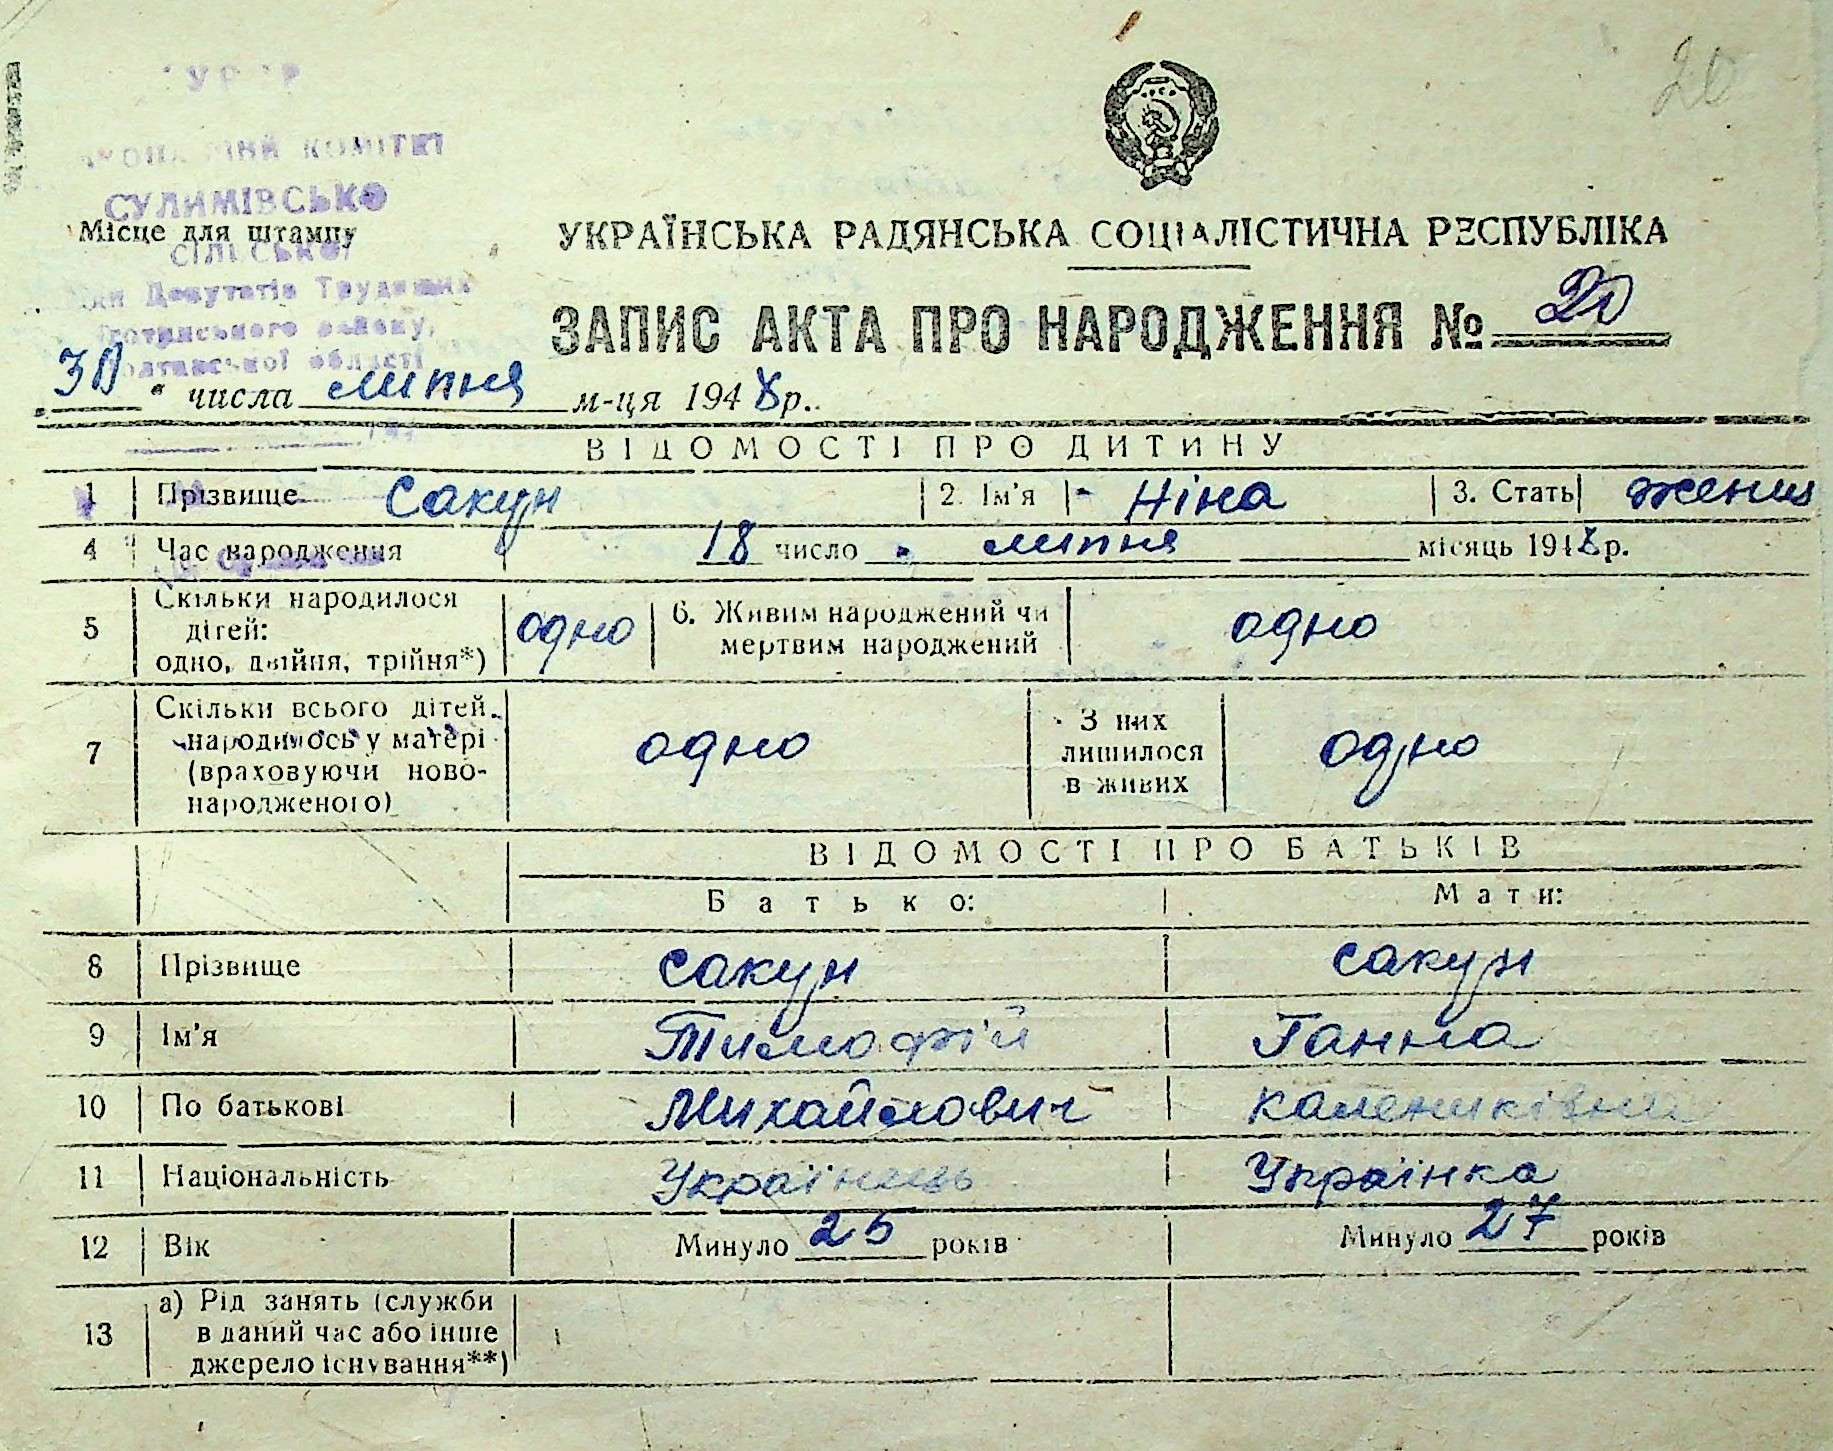 20
СУЛИМІВСЬКО
Місце для штампу
СІЛЬСЬКОЇ
Депутатів Трудящих
району,
області
УКРАЇНСЬКА РАДЯНСЬКА СОЦІАЛІСТИЧНА РЕСПУБЛІКА
ЗАПИС АКТА ПРО НАРОДЖЕННЯ № 20
„30“ числа липня м-ця 1948 р.
ВІДОМОСТІ ПРО ДИТИНУ
1 Прізвище Сакун 2. Ім'я Ніна 3. Стать
4 Час народження 18 число липня місяць 1948 р.
5 Скільки народилося дітей: одно, двійня, трійня*) одно 6. Живим народжений чи мертвим народжений одно
7 Скільки всього дітей народилось у матері (враховуючи ново-народженого) одно З них лишилося в живих одно
ВІДОМОСТІ ПРО БАТЬКІВ
Батько: Мати:
8 Прізвище Сакун Сакун
9 Ім'я Тимофій Ганна
10 По батькові Михайлович Калениківна
11 Національність Українець Українка
12 Вік Минуло 25 років Минуло 27 років
13 а) Рід занять (служби в даний час або інше джерело існування**)